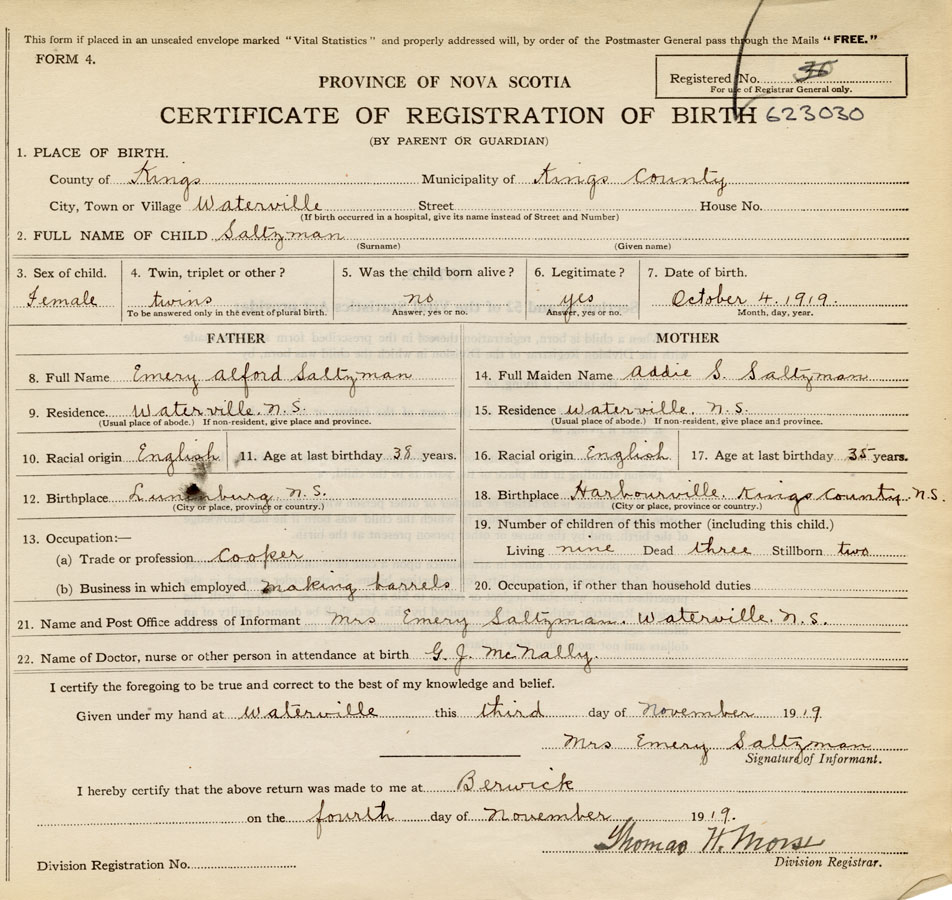 This form if placed in an unsealed envelope marked "Vital Statistics" and properly addressed will, by order of the Postmaster General pass through the Mails "FREE."
FORM 4.
Registered No. 36
For use of Registrar General only.
PROVINCE OF NOVA SCOTIA
CERTIFICATE OF REGISTRATION OF BIRTH 623030
(BY PARENT OR GUARDIAN)
1. PLACE OF BIRTH.
County of Kings Municipality of Kings County
City, Town or Village Waterville Street House No.
(If birth occurred in a hospital, give its name instead of Street and Number)
2. FULL NAME OF CHILD Saltzman
(Surname) (Given name)
3. Sex of child. 4. Twin, triplet or other? 5. Was the child born alive? 6. Legitimate? 7. Date of birth.
Female twins no yes October 4. 1919.
To be answered only in the event of plural birth. Answer, yes or no. Answer, yes or no. Month, day, year.
FATHER MOTHER
8. Full Name Emery Alford Saltzman 14. Full Maiden Name Addie S. Saltzman
9. Residence. Waterville. N.S. 15. Residence Waterville. N.S.
(Usual place of abode.) If non-resident, give place and province. (Usual place of abode.) If non-resident, give place and province.
10. Racial origin English 11. Age at last birthday 38 years. 16. Racial origin English 17. Age at last birthday 35 years.
12. Birthplace Lunenburg. N.S. 18. Birthplace Harbourville. Kings County. N.S.
(City or place, province or country.) (City or place, province or country.)
13. Occupation:— 19. Number of children of this mother (including this child.)
(a) Trade or profession Cooper Living nine Dead three Stillborn two
(b) Business in which employed making barrels 20. Occupation, if other than household duties
21. Name and Post Office address of Informant Mrs Emery Saltzman. Waterville. N.S.
22. Name of Doctor, nurse or other person in attendance at birth G. J. McNally.
I certify the foregoing to be true and correct to the best of my knowledge and belief.
Given under my hand at Waterville this third day of November 1919.
Mrs Emery Saltzman
Signature of Informant.
I hereby certify that the above return was made to me at Berwick
on the fourth day of November 1919.
Thomas H. Morse
Division Registration No. Division Registrar.